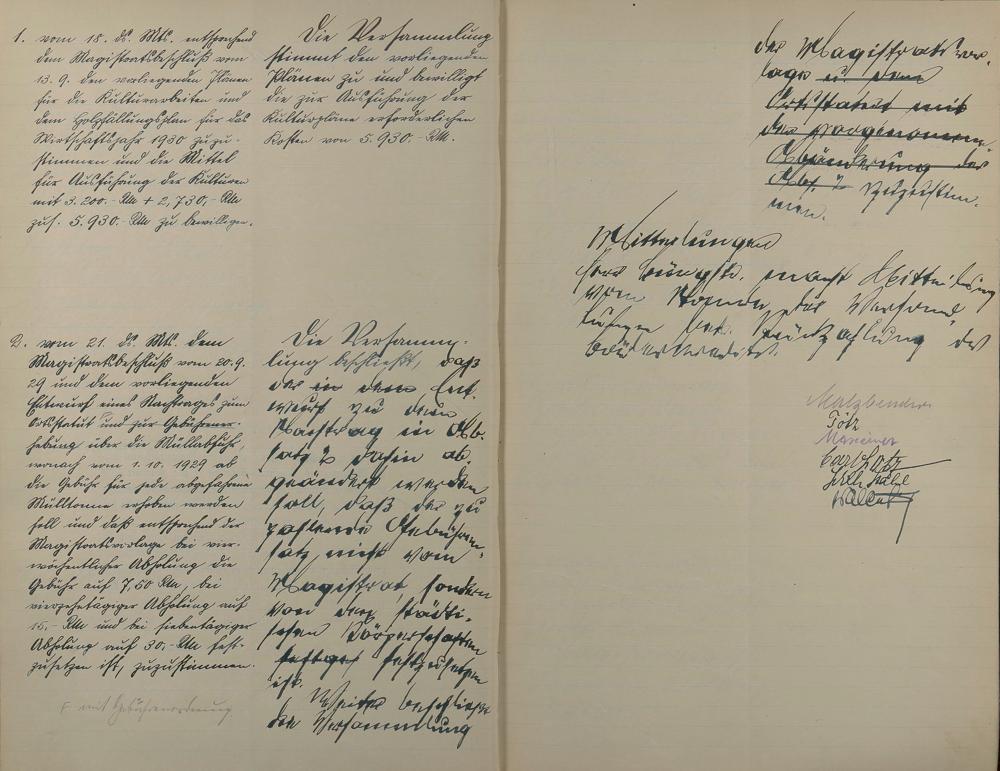 1. vom 18. ds. Mts. entsprechend
dem Magistratsbeschluß vom
13.9. den vorliegenden Plänen
für die Kulturarbeiten und
dem Holzfällungsplan für das
Wirtschaftsjahr 1930 zuzu-
stimmen und die Mittel
für Ausführung der Kulturen
mit 3.200.- RM + 2,730,- RM
zus. 5.930.- RM zu bewilligen.
Die Versammlung
stimmt den vorliegenden
Plänen zu und bewilligt
die zur Ausführung der
Kulturpläne erforderlichen
Kosten von 5.930.- RM.
2. vom 21. ds. Mts. dem
Magistratsbeschluß vom 20.9.
29 und dem vorliegenden
Entwurf eines Nachtrages zum
Ortsstatut und zur Gebührener-
hebung über die Müllabfuhr,
wonach vom 1.10.1929 ab
die Gebühr für jede abgefahrene
Mülltonne erhoben werden
soll und daß entsprechend der
Magistratsvorlage bei vier-
wöchentlicher Abholung die
Gebühr auf 7,50 RM, bei
vierzehntägiger Abholung auf
15.- RM und bei siebentägiger
Abholung auf 30.- RM fest-
zusetzen ist, zuzustimmen.
F mit Gebührenordnung
Die Versamm-
lung beschließt, daß
der in dem Ent-
wurf zu dem
Nachtrag in Ab-
satz 2 dahin ab-
geändert werden
soll, daß der zu
zahlende Gebühren-
satz nicht vom
Magistrat sondern
von den städti-
schen Körperschaften
festzusetzen
ist.
Weiter beschließt
die Versammlung
der Magistratsvor-
lage u. dem
Ortsstatut mit
der vorgenomm.
Abänderung des
Abs. 2 zuzustim-
men.
Mitteilungen
Herr Bürgstr. macht Mitteilung
vom Stande der Verhand-
lungen betr. Rückzahlung des
Malzbender
Götz